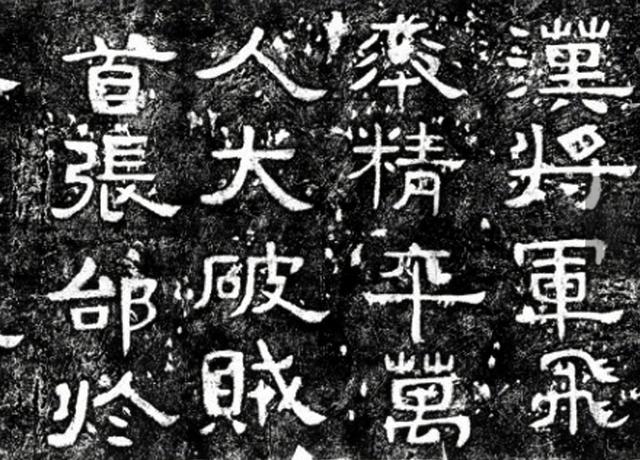 漢將軍飛
率精卒萬
人大破賊
首張郃於